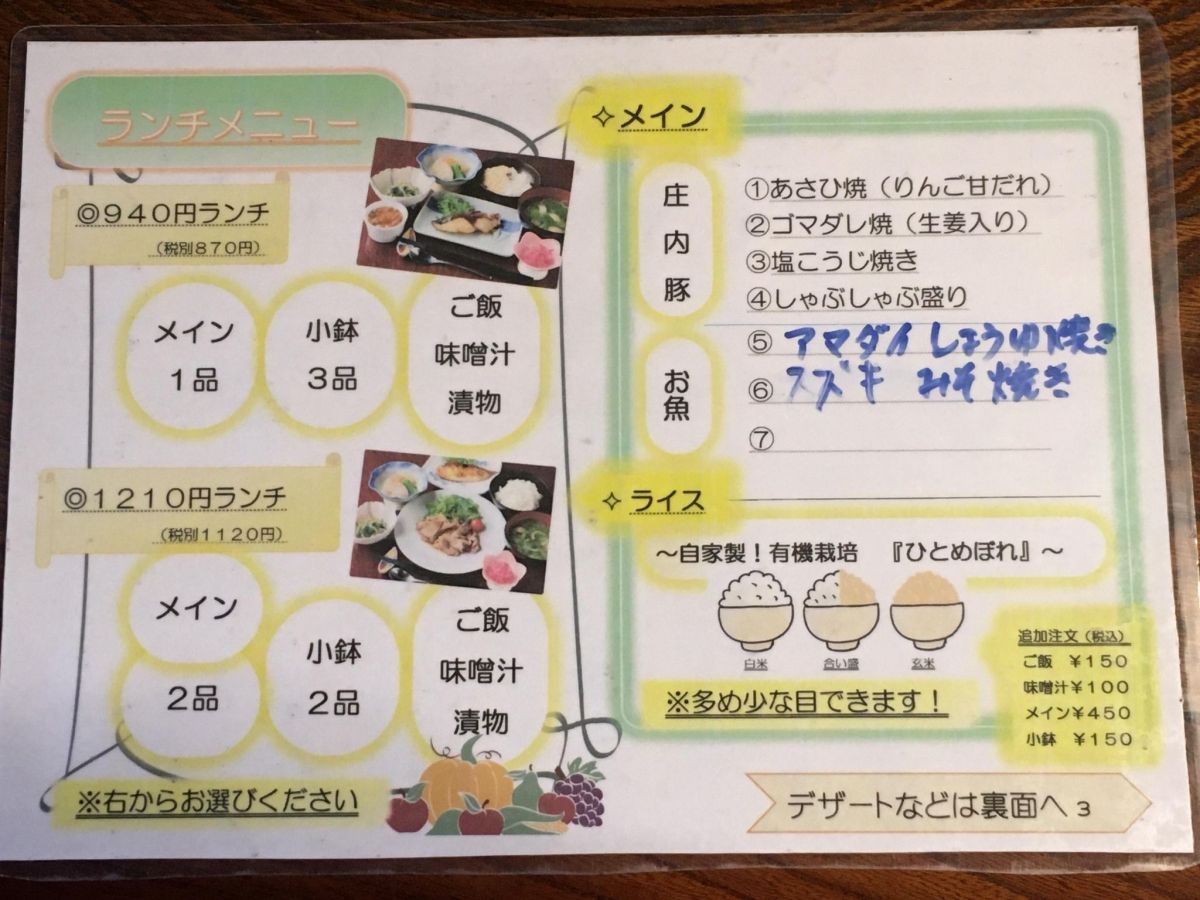 ランチメニュー
◎940円ランチ
（税別870円）
メイン
1品
小鉢
3品
ご飯
味噌汁
漬物
◎1210円ランチ
（税別1120円）
メイン
2品
小鉢
2品
ご飯
味噌汁
漬物
※右からお選びください
✧メイン
庄内豚
①あさひ焼（りんご甘だれ）
②ゴマダレ焼（生姜入り）
③塩こうじ焼き
④しゃぶしゃぶ盛り
お魚
⑤ アマダイ しょうゆ焼き
⑥ スズキ みそ焼き
⑦
✧ライス
～自家製！有機栽培 『ひとめぼれ』～
白米 合い盛 玄米
※多め少な目できます！
追加注文（税込）
ご飯 ￥150
味噌汁￥100
メイン￥450
小鉢 ￥150
デザートなどは裏面へ 3